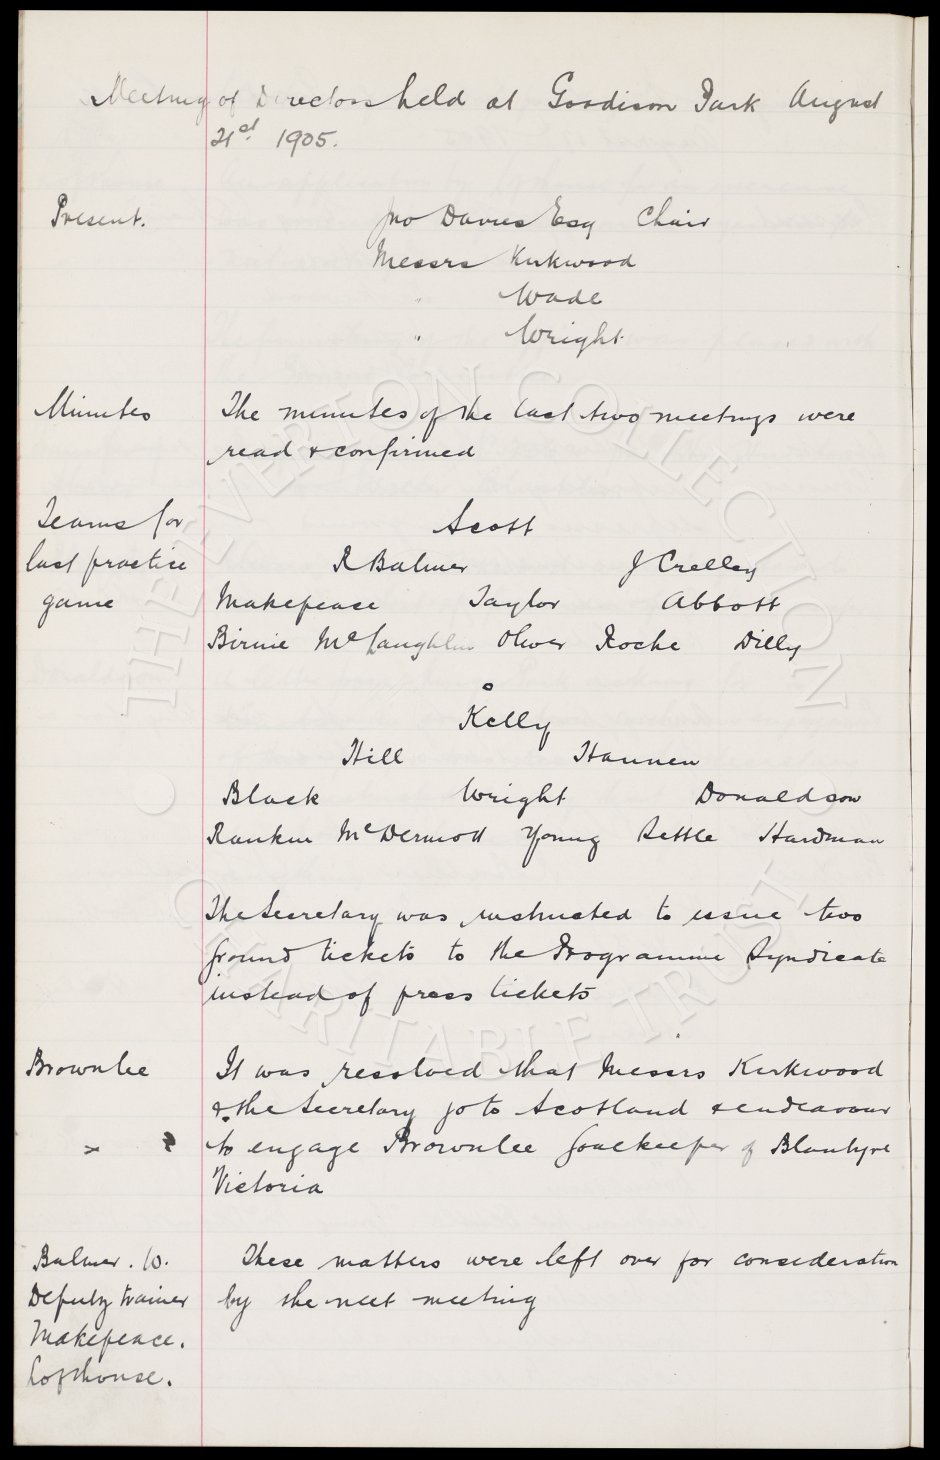 Meeting of Directors held at Goodison Park August
21st 1905.
Present.
Jno Davies Esq Chair
Messrs Kirkwood
" Wade
" Wright
Minutes
The minutes of the last two meetings were
read & confirmed
Teams for
last practice
game
Scott
R Balmer J Crelley
Makepeace Taylor Abbott
Birnie McLaughlin Oliver Roche Dilly
o
Kelly
Hill Hannen
Black Wright Donaldson
Rankin McDermod Young Settle Hardman
The Secretary was instructed to issue two
ground tickets to the Programme Syndicate
instead of press tickets
Brownlee
It was resolved that Messrs Kirkwood
& the Secretary go to Scotland & endeavour
to engage Brownlee Goalkeeper of Blantyre
Victoria
Balmer. W.
Deputy trainer
Makepeace.
Lofthouse.
These matters were left over for consideration
by the next meeting
THE EVERTON COLLECTION
CHARITABLE TRUST